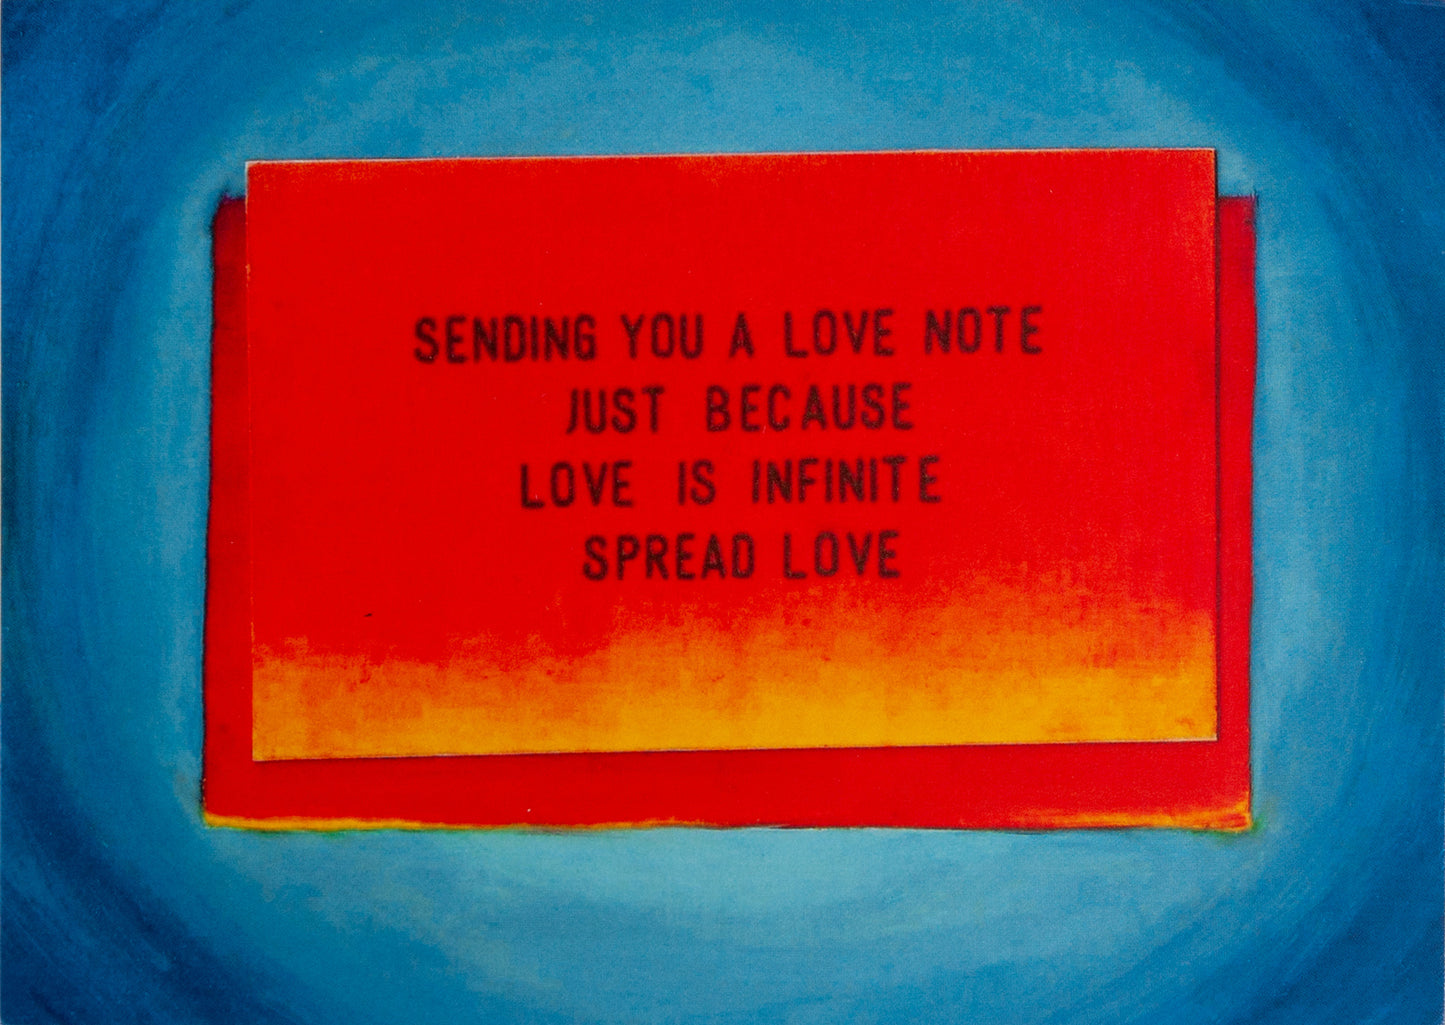 SENDING YOU A LOVE NOTE
JUST BECAUSE
LOVE IS INFINITE
SPREAD LOVE